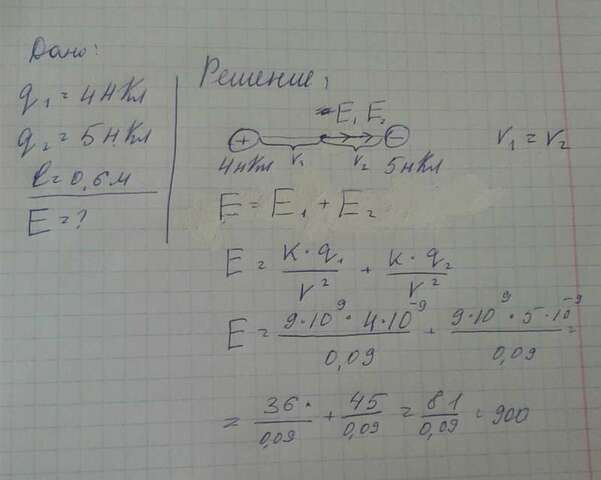 Дано:
q₁ = 4 нКл
q₂ = 5 нКл
l = 0,6 м
E = ?
Решение:
E₁ E₂
+ −
r₁ r₂
4 нКл 5 нКл
r₁ = r₂
E = E₁ + E₂
E = K · q₁ / r² + K · q₂ / r²
E = 9·10⁹ · 4·10⁻⁹ / 0,09 + 9·10⁹ · 5·10⁻⁹ / 0,09 =
= 36 / 0,09 + 45 / 0,09 = 81 / 0,09 = 900